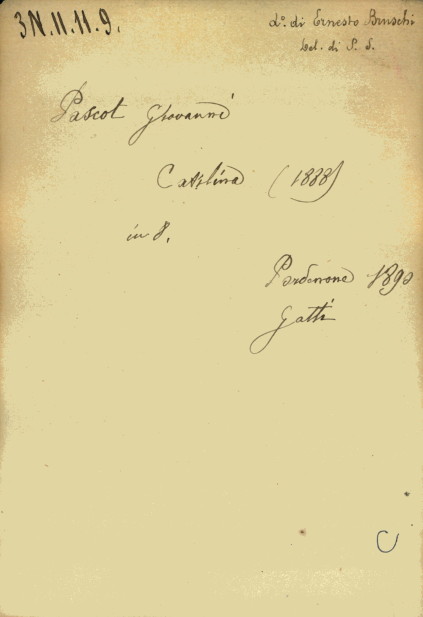 3 N. 11. 11. 9.
d.º di Ernesto Bruschi
Bol. di S. S.
Pascot Giovanni
Catilina (1888)
in 8.
Pordenone 1890
Gatti
C